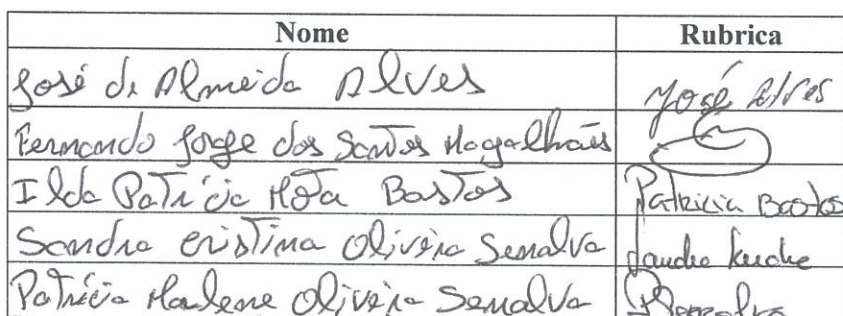 Nome Rubrica
José de Almeida Alves José Alves
Fernando Jorge dos Santos Magalhães
Ilda Patrícia Mota Bastos Patricia Bastos
Sandra Cristina Oliveira Senalva Sandra
Patrícia Marlene Oliveira Senalva